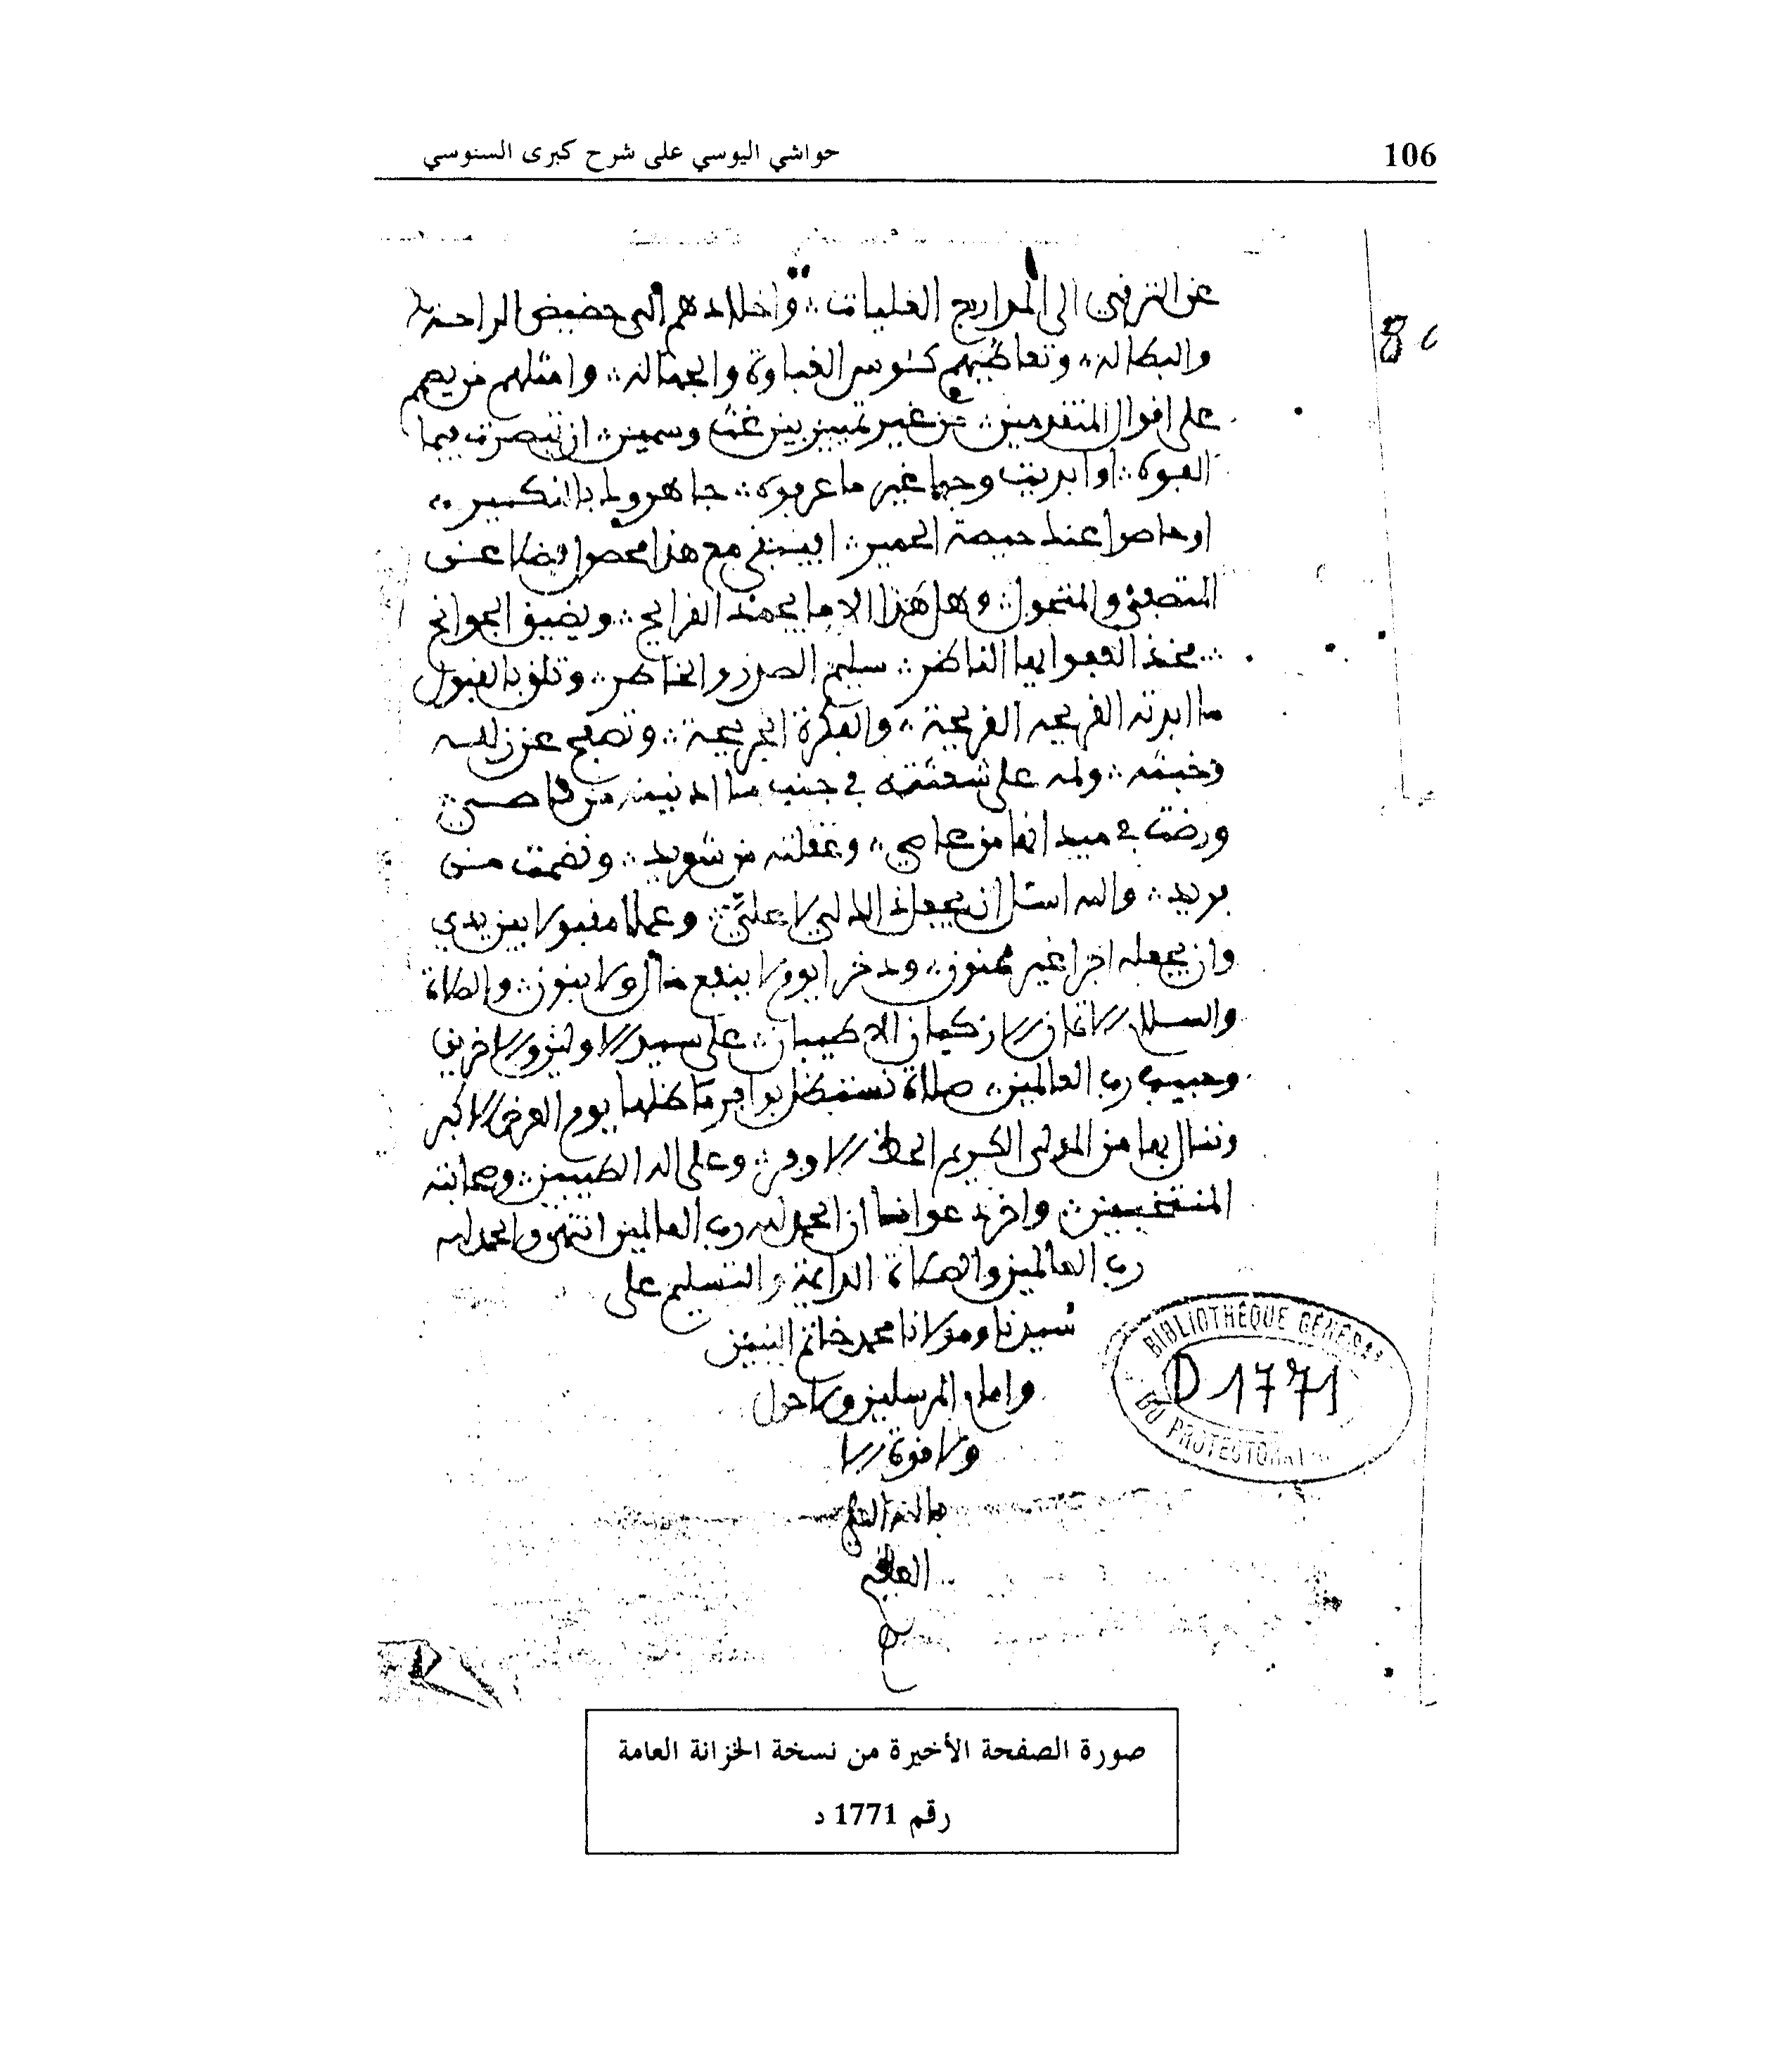 106
حواشي اليوسي على شرح كبرى السنوسي
عن الترقي الى المعاريج العليات ∴ واخلادهم الى حضيض الراحة
والبطالة ∴ وتعاطيهم كئوس الغباوة والجهالة ∴ وامثلهم من يهجم
على اقوال المتقدمين ∴ من غير تمييز بين غث وسمين ∴ ان تتصرف فيما
الفوه ∴ او ابديت وجها غير ما عرفوه ∴ جاهروا بالنكير ∴
او حاصوا عنك حيصة الحمير ∴ اينبغي مع هذا محصول فضلا عن
المتصدي والمتحول ∴ وهل هذا الا مما يخمد القرايح ∴ ويضيق الجوانح
∴ فخذ العفو ايها الناظر ∴ سليم الصدر والخاطر ∴ وتلق بالقبول
ما ابدته القريحه القريحة ∴ والفكرة الجريحة ∴ وتصفح عن زلله
وخبثه ∴ ولمه على شعثه في جنب ما ادنيته من قاصي ∴
ورضت في ميدانها من عاصي ∴ وعقلته من شريد ∴ ونظمت من
فريد ∴ والله اسئل ان يجعله لي لا علي ∴ وعملا مقبولا بين يدي
وان يجعله اجرا غير ممنون ∴ وذخرا يوم لا ينفع مال ولا بنون ∴ والصلاة
والسلام الاتمان الازكيان الاطيبان ∴ على سيد الاولين والاخرين
وحبيب رب العالمين ∴ صلاة نستظل بوافر ظلها يوم العرض الاكبر
وننال بها من المولى الكريم الحظ الاوفر ∴ وعلى اله الطيبين ∴ وصحابته
المنتخبين ∴ واخر دعوانا ان الحمد لله رب العالمين انتهى والحمد لله
رب العالمين والصلاة الدايمة والتسليم على
سيدنا ومولانا محمد خاتم النبيين
وامام المرسلين ولا حول
ولا قوة الا
بالله العلي
العظيم
BIBLIOTHÈQUE GÉNÉRALE
D 1771
DU PROTECTORAT
صورة الصفحة الأخيرة من نسخة الخزانة العامة
رقم 1771 د